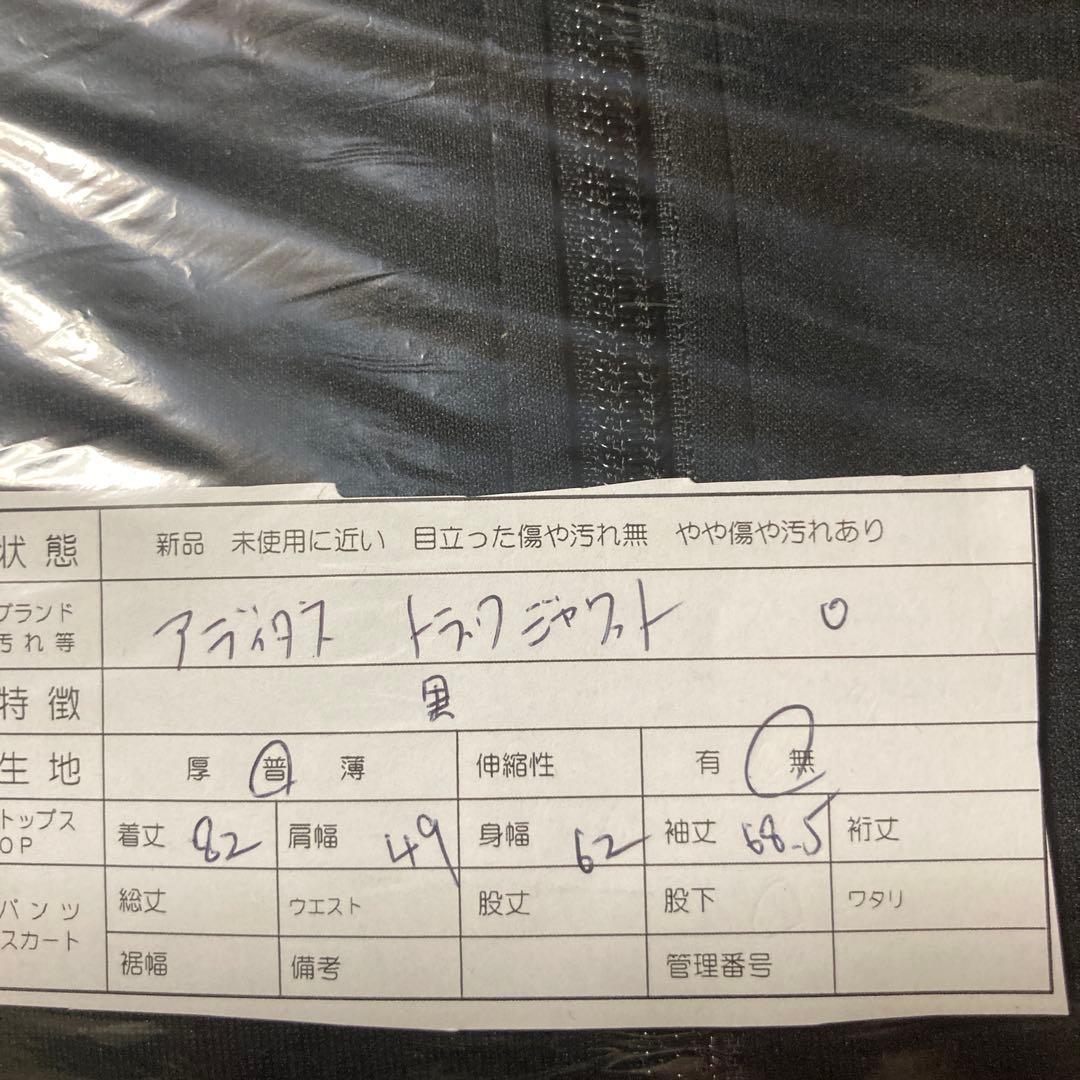 状態 新品 未使用に近い 目立った傷や汚れ無 やや傷や汚れあり
ブランド
汚れ等 アディダス トラックジャケット ○
特徴 黒
生地 厚 普 薄 伸縮性 有 無
トップス
OP 着丈 82 肩幅 49 身幅 62 袖丈 68.5 裄丈
パンツ
スカート 総丈 ウエスト 股丈 股下 ワタリ
裾幅 備考 管理番号